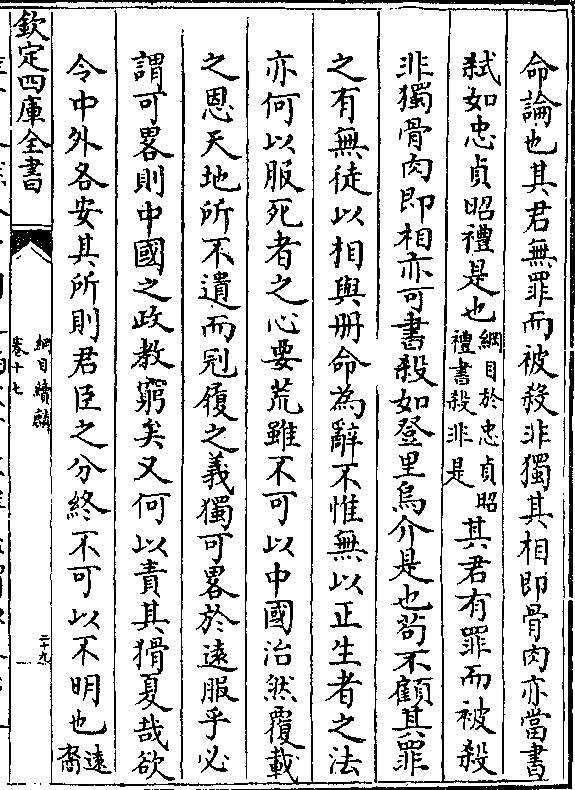 命論也其君無罪而被殺非獨其相即骨肉亦當書
弑如忠貞昭禮是也綱目於忠貞昭禮書殺非是其君有罪而被殺
非獨骨肉即相亦可書殺如登里烏介是也茍不顧其罪
之有無徒以相與册命為辭不惟無以正生者之法
亦何以服死者之心要荒雖不可以中國治然覆載
之恩天地所不遺而冠履之義獨可畧於遠服乎必
謂可畧則中國之政教窮矣又何以責其猾夏哉欲
令中外各安其所則君臣之分終不可以不明也遠裔
欽定四庫全書
綱目續麟
卷十七
二十九